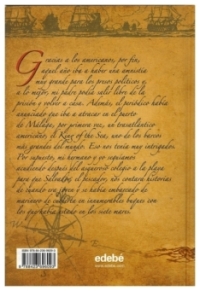 Gracias a los americanos, por fin,
aquel año iba a haber una amnistía
muy grande para los presos políticos a
lo mejor mi padre podía salir libre de la
prisión y volver a casa. Además, el periódico había
anunciado que iba a atracar en el puerto
de Málaga, por primera vez, un trasatlántico
americano: el King of the Sea, uno de los barcos
más grandes del mundo. Eso nos tenía muy intrigados.
Por supuesto, mi hermano y yo seguíamos
acudiendo después del colegio a la playa
para que Salvador, el pescador, nos contara historias
de cuando era joven y se había embarcado de
marinero de cubierta en innumerables buques con
los que había surcado los siete mares.
edebé